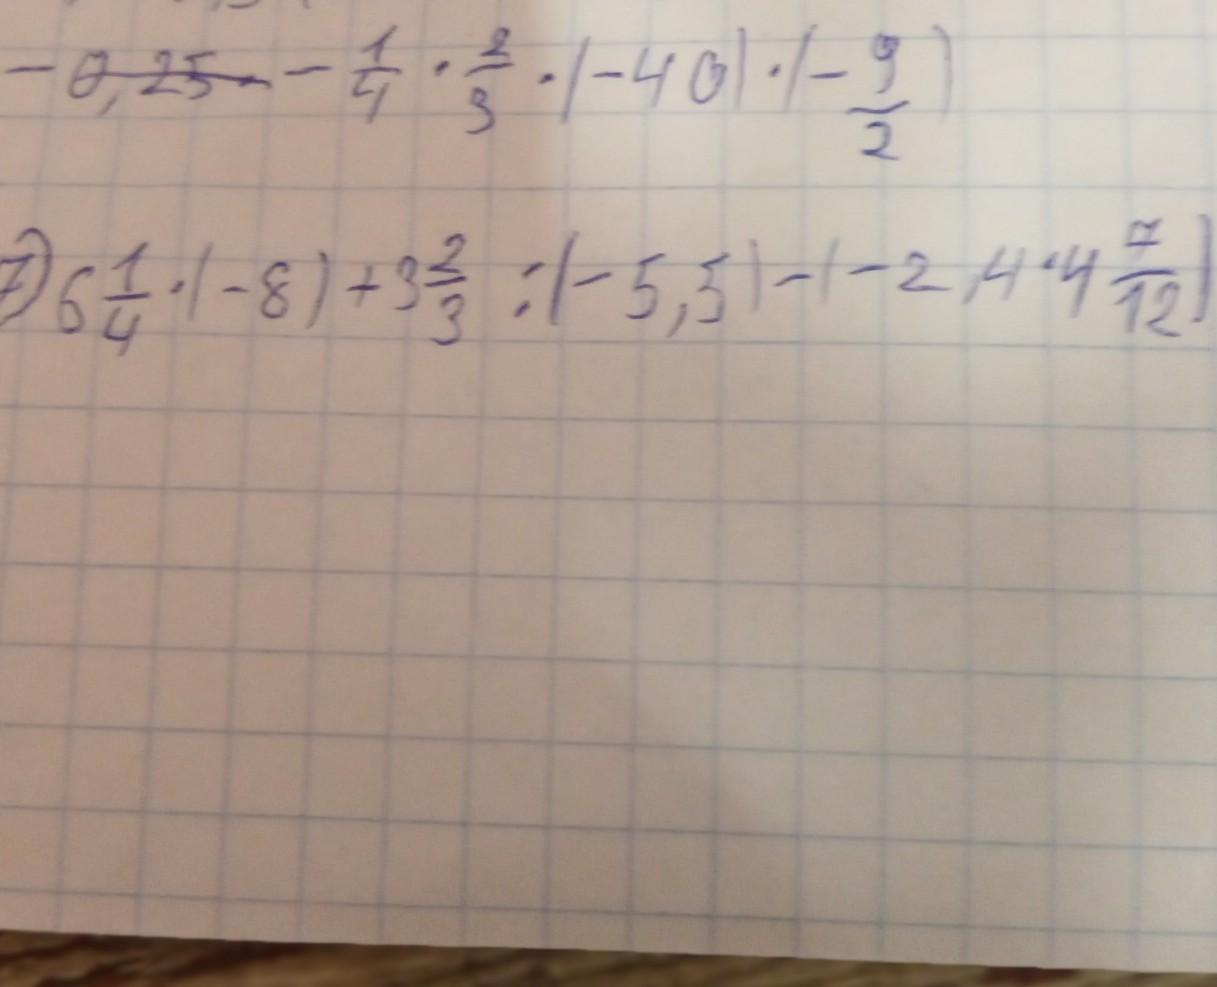 - 0,25 - 1/4 · 2/3 · (-40) · (-9/2)
7) 6 1/4 · (-8) + 3 2/3 : (-5,5) - (-2,4 · 4 7/12)